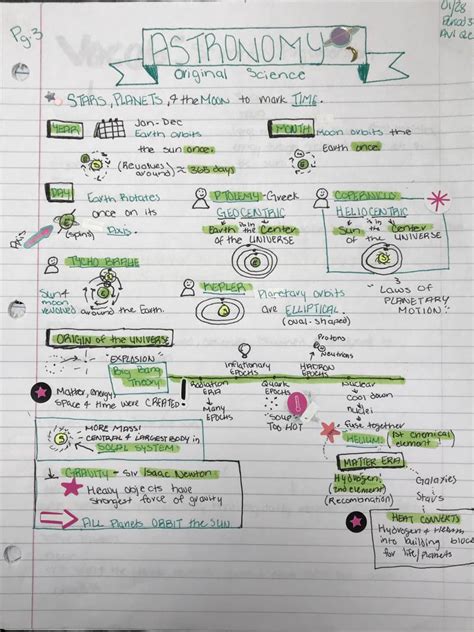 01/28
Pg. 3
Period 3
ASTRONOMY
Original Science
STARS, PLANETS, & the MOON to mark TIME.
YEAR
Jan-Dec
Earth orbits
the sun once.
(Revolves around) ≈ 365 days
MONTH
Moon orbits the
Earth once
DAY
Earth Rotates
once on its
Axis.
(spins)
Axis
PTOLEMY-Greek
GEOCENTRIC
Earth is in the Center
of the UNIVERSE
COPERNICUS
HELIOCENTRIC
Sun is in the Center
of the UNIVERSE
TYCHO BRAHE
Sun &
moon
revolved around the Earth.
KEPLER
Planetary orbits
are ELLIPTICAL
(oval-shaped)
3
LAWS OF
PLANETARY
MOTION
ORIGIN of the UNIVERSE
EXPLOSION
Big Bang
Theory
Matter, energy,
space & time were CREATED!
Inflationary
EPOCHS
HADRON
EPOCHS
Protons
Neutrons
Radiation
ERA
Many
EPOCHS
Quark
EPOCHS
"SOUP"
TOO HOT
Nuclear
Cool down
nuclei
fuse together
HELIUM
(1st chemical
element)
MORE MASS!
CENTRAL & LARGEST BODY in
SOLAR SYSTEM
GRAVITY - Sir Isaac Newton
Heavy objects have
strongest force of gravity
All Planets ORBIT the SUN
MATTER ERA
Hydrogen
(2nd element)
(Recombination)
Galaxies
Stars
HEAT CONVERTS
Hydrogen & Helium
into building blocks
for life/planets